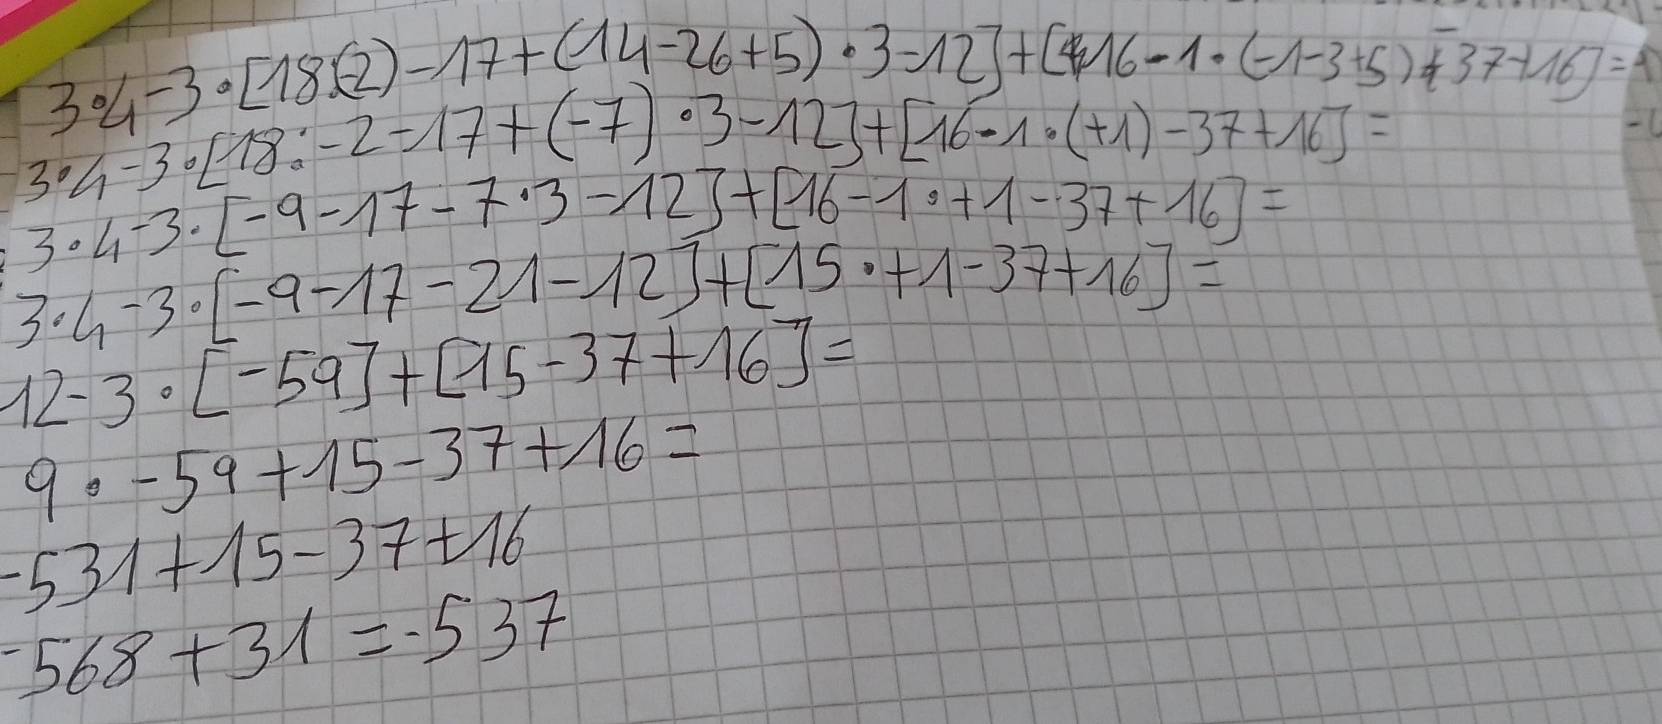 3·4-3·[18:(-2)-17+(14-26+5)·3-12]+[16-1·(-1-3+5)-37+16]=
3·4-3·[18:-2-17+(-7)·3-12]+[16-1·(+1)-37+16]=
3·4-3·[-9-17-7·3-12]+[16-1·+1-37+16]=
3·4-3·[-9-17-21-12]+[15·+1-37+16]=
12-3·[-59]+[15-37+16]=
9·-59+15-37+16=
-531+15-37+16
-568+31=-537